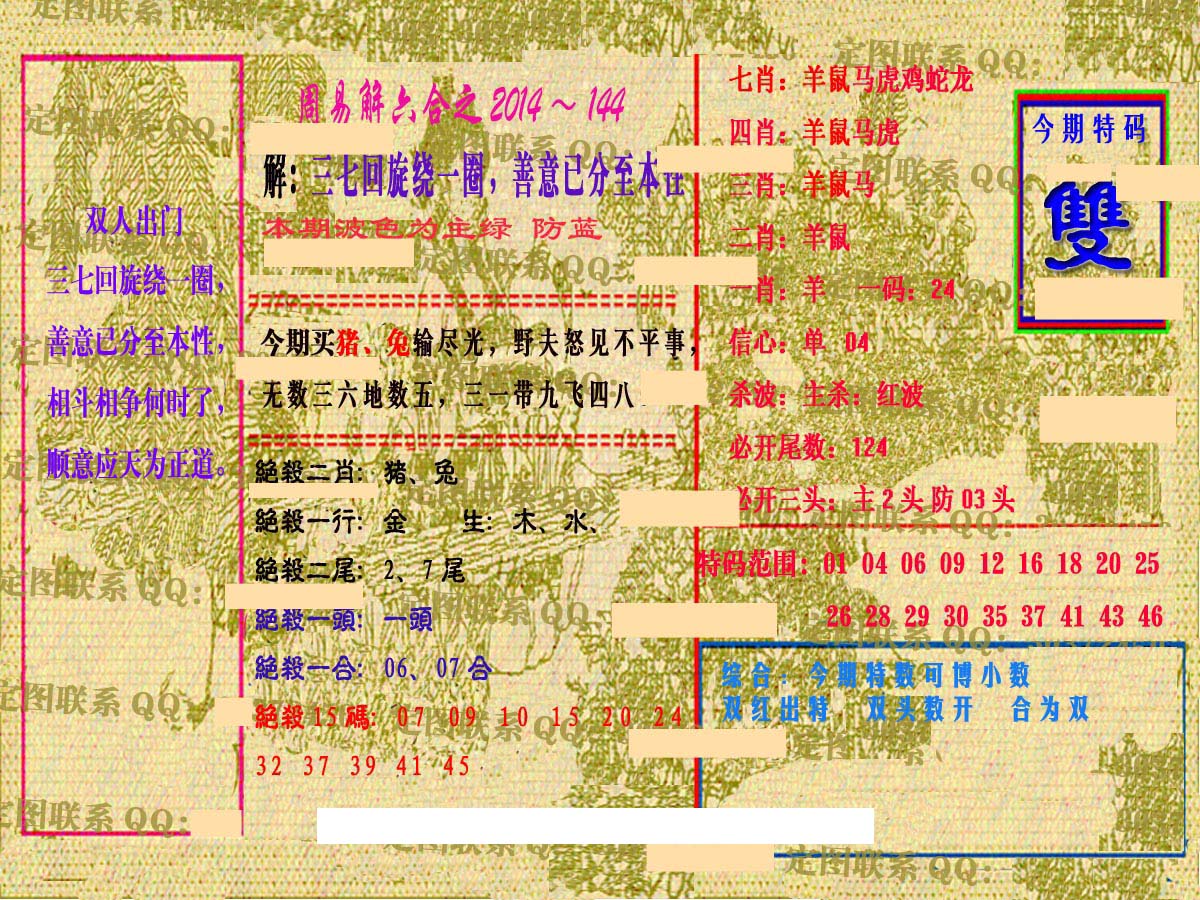 周易解六合之2014～144
双人出门
三七回旋绕一圈，
善意已分至本性，
相斗相争何时了，
顺意应天为正道。
解：三七回旋绕一圈，善意已分至本性
本期波色为主绿 防蓝
今期买猪、兔输尽光，野夫怒见不平事，
无数三六地数五，三一带九飞四八
絕殺二肖：猪、兔
絕殺一行：金 生：木、水、
絕殺二尾：2、7尾
絕殺一頭：一頭
絕殺一合：06、07合
絕殺15碼：07 09 10 15 20 24
32 37 39 41 45
七肖：羊鼠马虎鸡蛇龙
四肖：羊鼠马虎
三肖：羊鼠马
二肖：羊鼠
一肖：羊 一码：24
信心：单 04
杀波：主杀：红波
必开尾数：124
必开三头：主2头防03头
今期特码
雙
特码范围：01 04 06 09 12 16 18 20 25
26 28 29 30 35 37 41 43 46
综合：今期特数可博小数
双红出特 双头数开 合为双
定图联系QQ：
定图联系QQ：
定图联系QQ：
定图联系QQ：
定图联系QQ：
定图联系QQ：